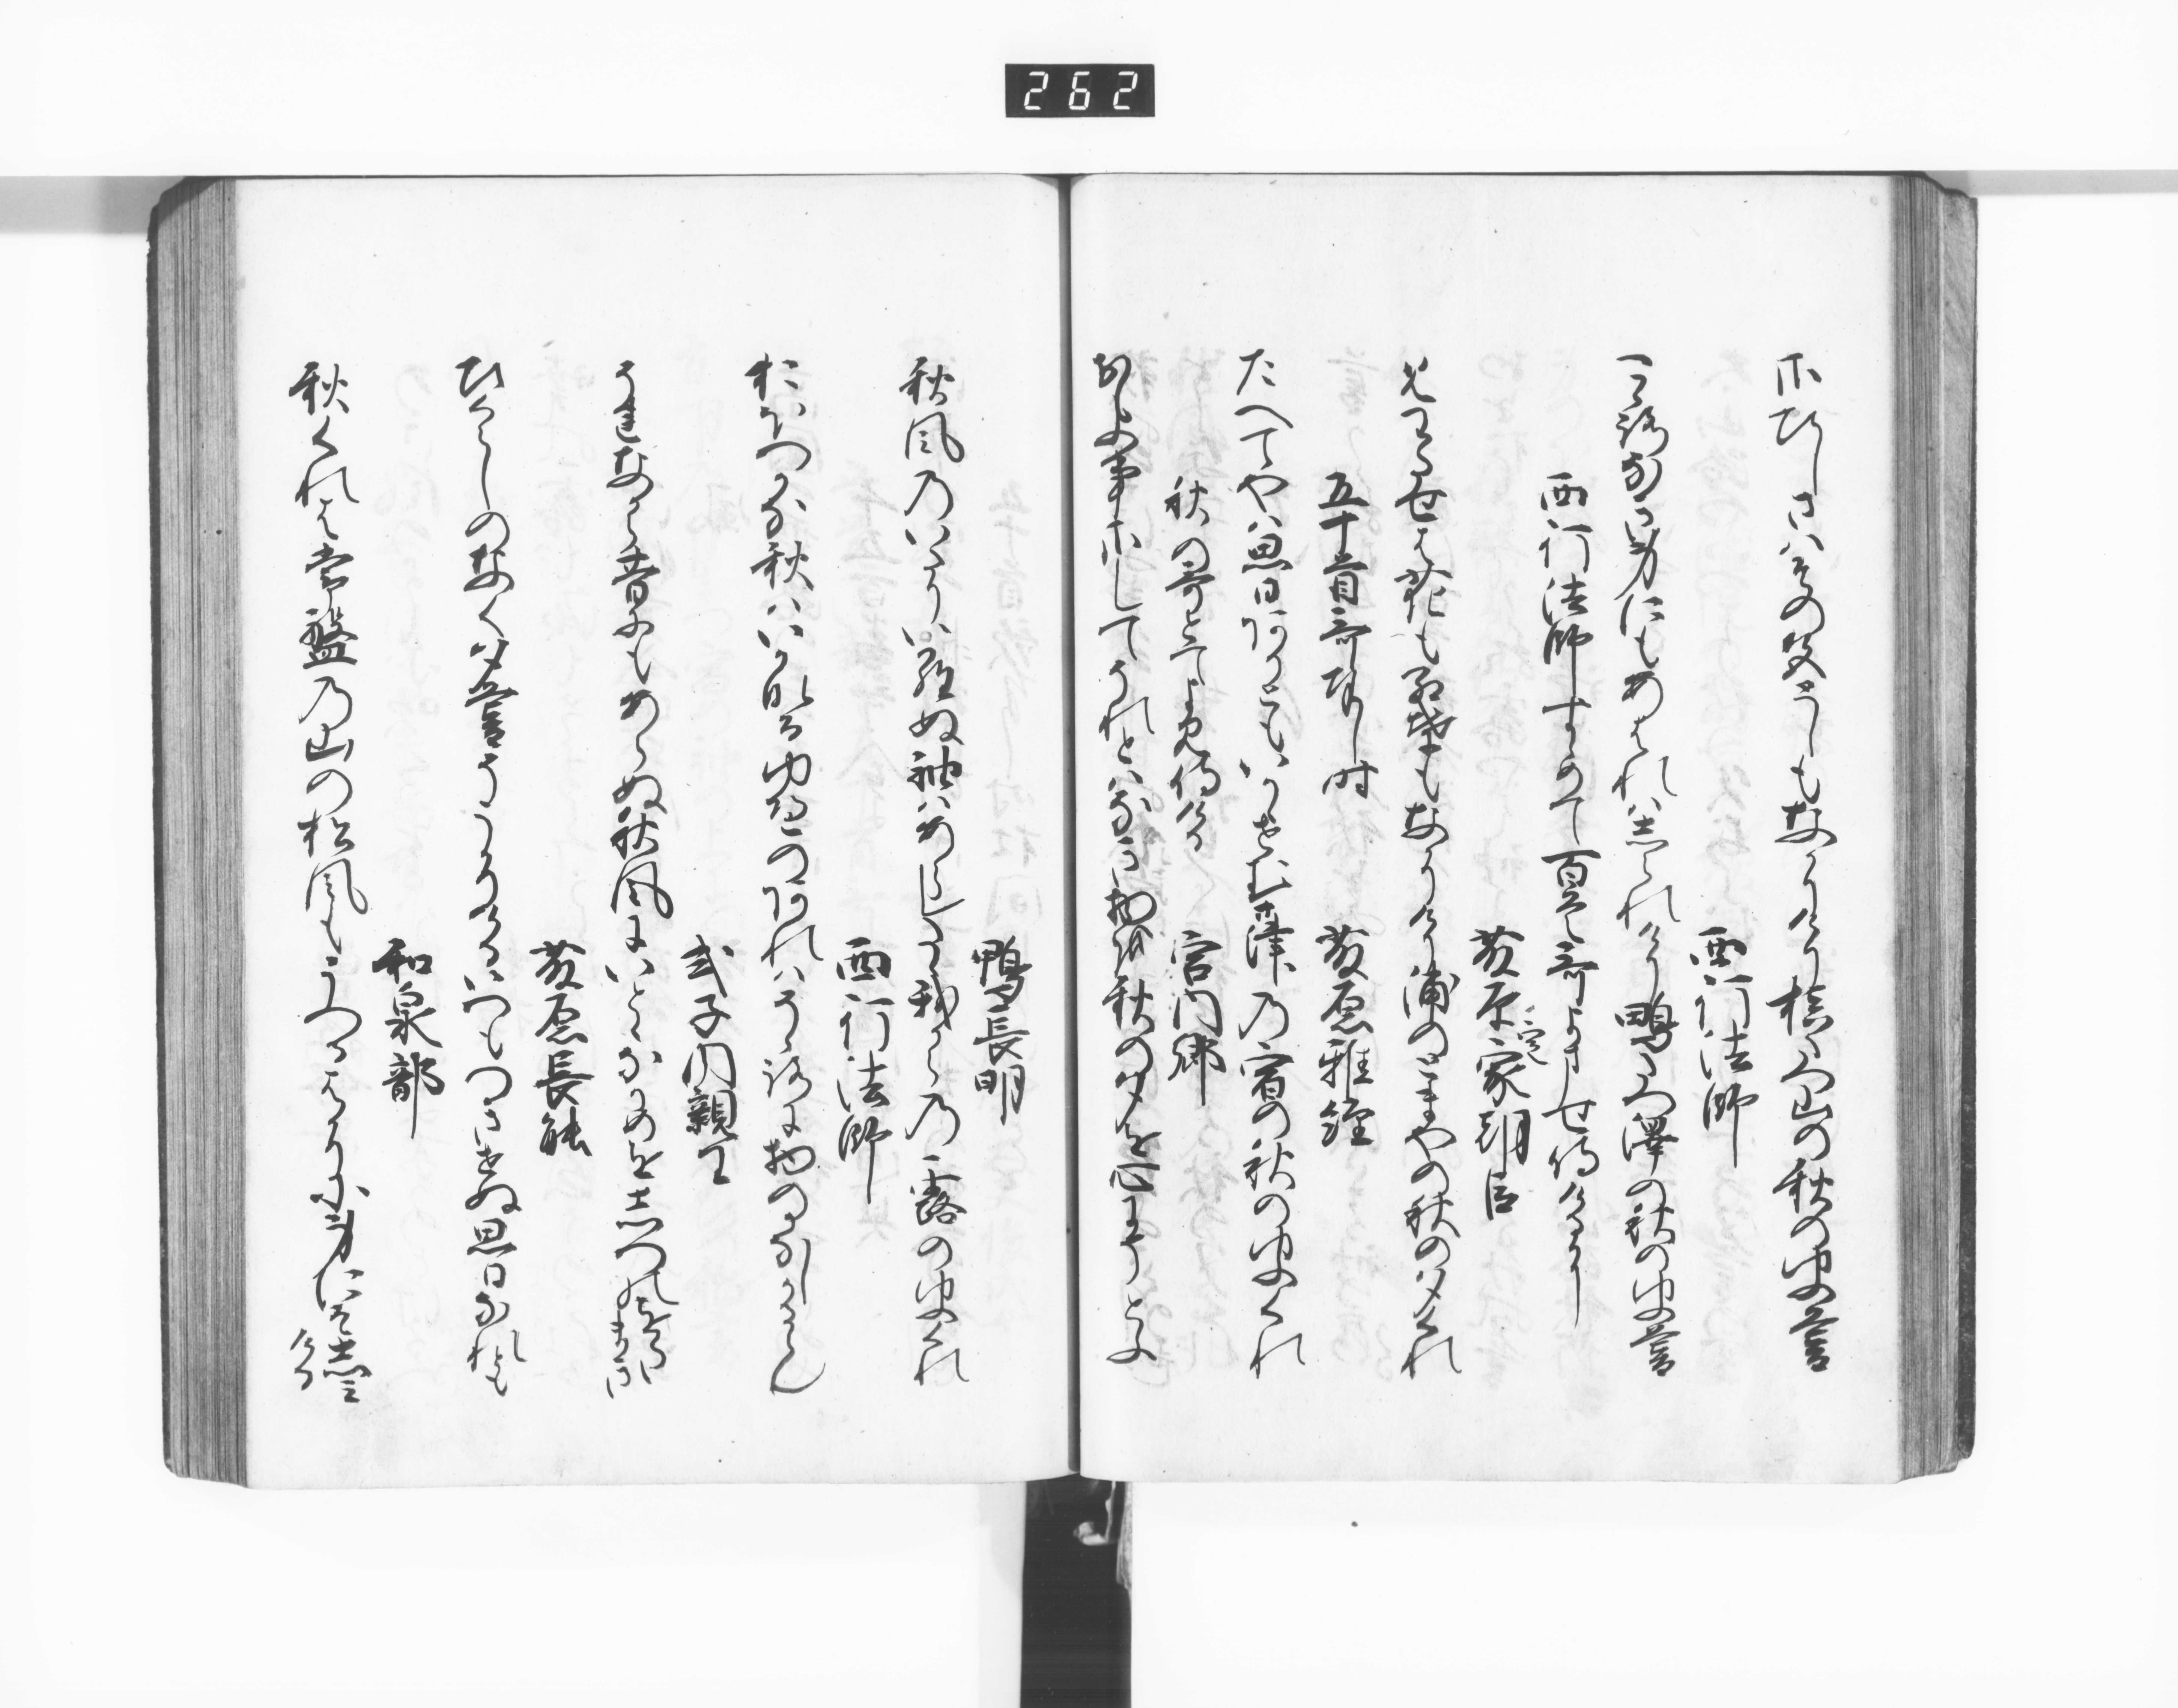 262
さひしさはその色としもなかりけり槙たつ山の秋の夕暮
西行法師
心なき身にもあはれはしられけり鴫たつ澤の秋の夕暮
西行法師すゝめて百首哥よませ侍けるに
藤原定家朝臣
見わたせは花も紅葉もなかりけり浦のとまやの秋の夕くれ
五十首哥奉し時
藤原雅経
たへてやは思ひありともいかゝせむ葎の宿の秋の夕くれ
秋の哥とてよみ侍ける
宮内卿
おもふ事さしてそれとはなき物を秋の夕を心にそとふ
鴨長明
秋風のいたりいたらぬ袖はあらし只我からの露の夕くれ
西行法師
おほつかな秋はいかなるゆへのあれはすゝろに物のかなしかるらん
式子内親王
それなから昔にもあらぬ秋風にいとゝなかめをしつのをたまき
藤原長能
ひくらしのなく夕暮そうかりけるいつもつきせぬ思ひなれとも
和泉式部
秋くれは常盤の山の松風もうつるはかりに身にそしみける